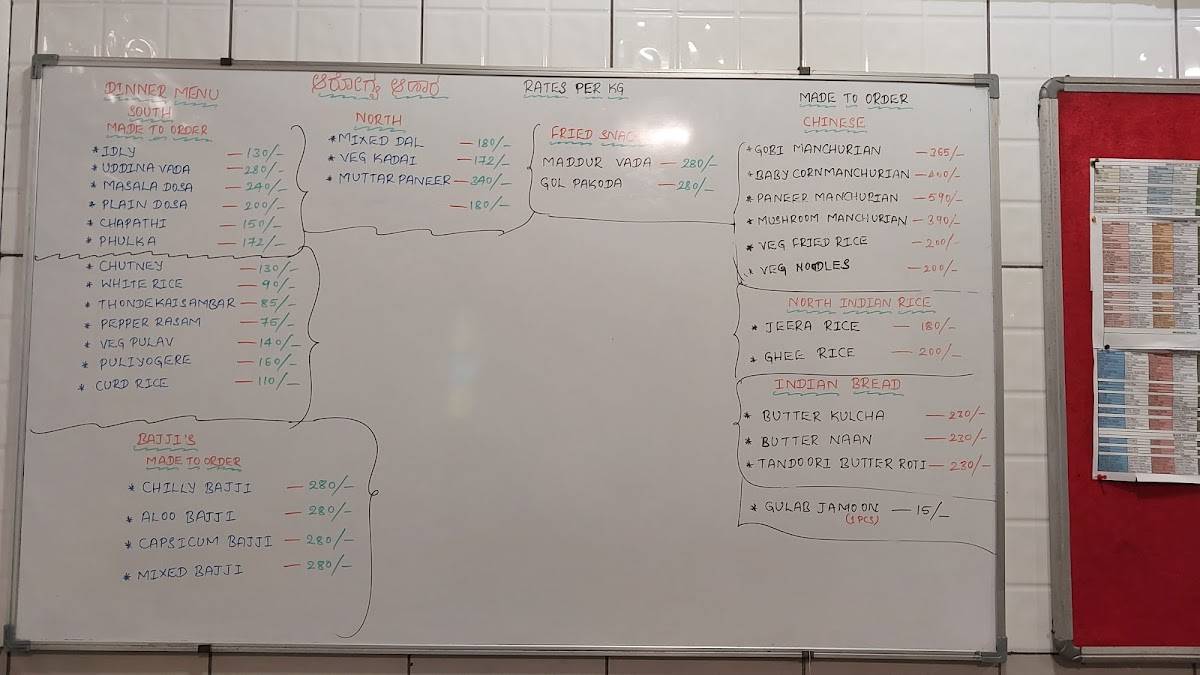 DINNER MENU
SOUTH
MADE TO ORDER
* IDLY — 130/-
* UDDINA VADA — 280/-
* MASALA DOSA — 240/-
* PLAIN DOSA — 200/-
* CHAPATHI — 150/-
* PHULKA — 172/-
* CHUTNEY — 130/-
* WHITE RICE — 90/-
* THONDEKAI SAMBAR — 85/-
* PEPPER RASAM — 75/-
* VEG PULAV — 140/-
* PULIYOGERE — 160/-
* CURD RICE — 110/-
BAJJI'S
MADE TO ORDER
* CHILLY BAJJI — 280/-
* ALOO BAJJI — 280/-
* CAPSICUM BAJJI — 280/-
* MIXED BAJJI — 280/-
ಆರೋಗ್ಯ ಆಹಾರ
NORTH
* MIXED DAL — 180/-
* VEG KADAI — 172/-
* MUTTAR PANEER — 340/-
— 180/-
RATES PER KG
FRIED
MADDUR VADA — 280/-
GOL PAKODA — 280/-
MADE TO ORDER
CHINESE
* GOBI MANCHURIAN — 365/-
* BABY CORN MANCHURIAN — 400/-
* PANEER MANCHURIAN — 590/-
* MUSHROOM MANCHURIAN — 390/-
* VEG FRIED RICE — 200/-
* VEG NOODLES — 200/-
NORTH INDIAN RICE
* JEERA RICE — 180/-
* GHEE RICE — 200/-
INDIAN BREAD
* BUTTER KULCHA — 230/-
* BUTTER NAAN — 230/-
* TANDOORI BUTTER ROTI — 230/-
* GULAB JAMOON — 15/-
(1 PCS)